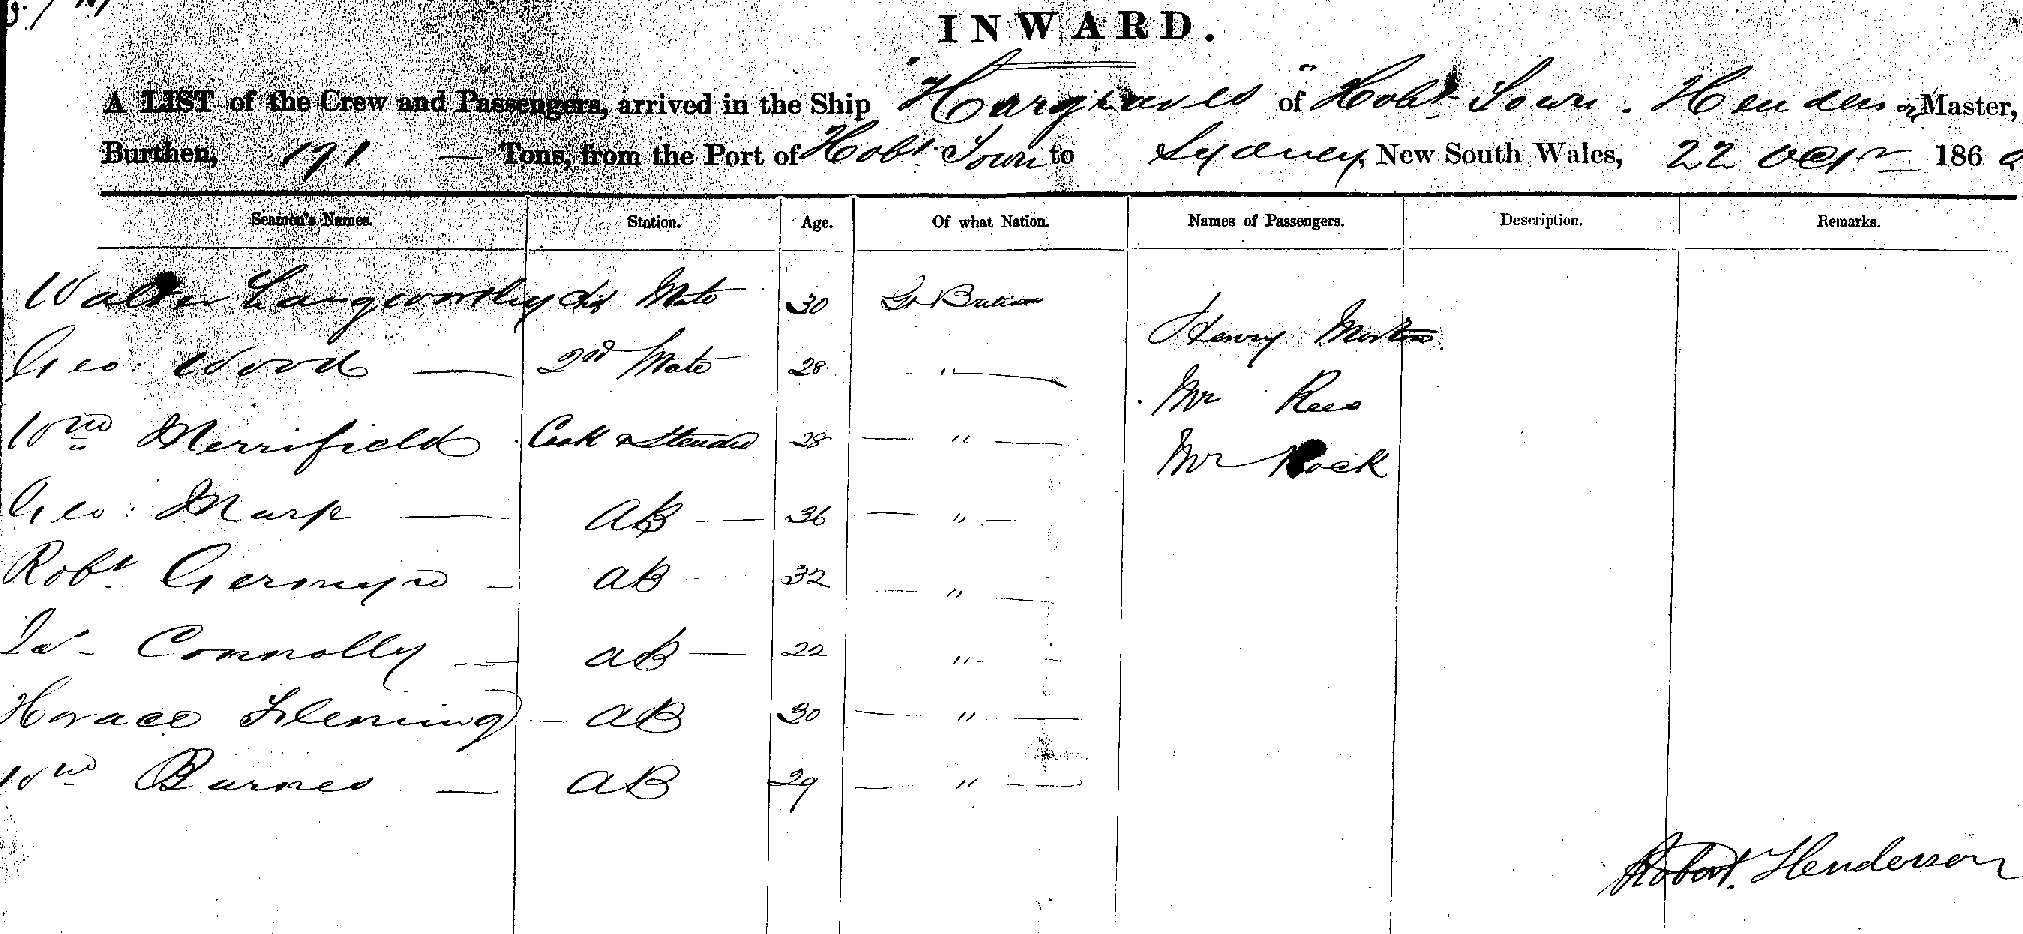 INWARD.
A LIST of the Crew and Passengers, arrived in the Ship "Hargraves" of Hobt Town. Henderson Master,
Burthen, 191 — Tons, from the Port of Hobt Town to Sydney, New South Wales, 22 Octr 1860
Seamen's Names. Station. Age. Of what Nation. Names of Passengers. Description. Remarks.
Walter Langworthy Chf Mate 30 Gt Britain
Henry Morton
Geo. Wood — 2nd Mate 28 "
Mr Rees
Wm Merrifield Cook & Steward 28 — " —
Mr Rock
Geo: Marp — AB — 36 — " —
Robt Germyn — AB 32 — " —
Connolly — AB — 22 " -
Horace Fleming — AB 30 — " —
Wm Barnes — AB 29 — " —
Robert Henderson